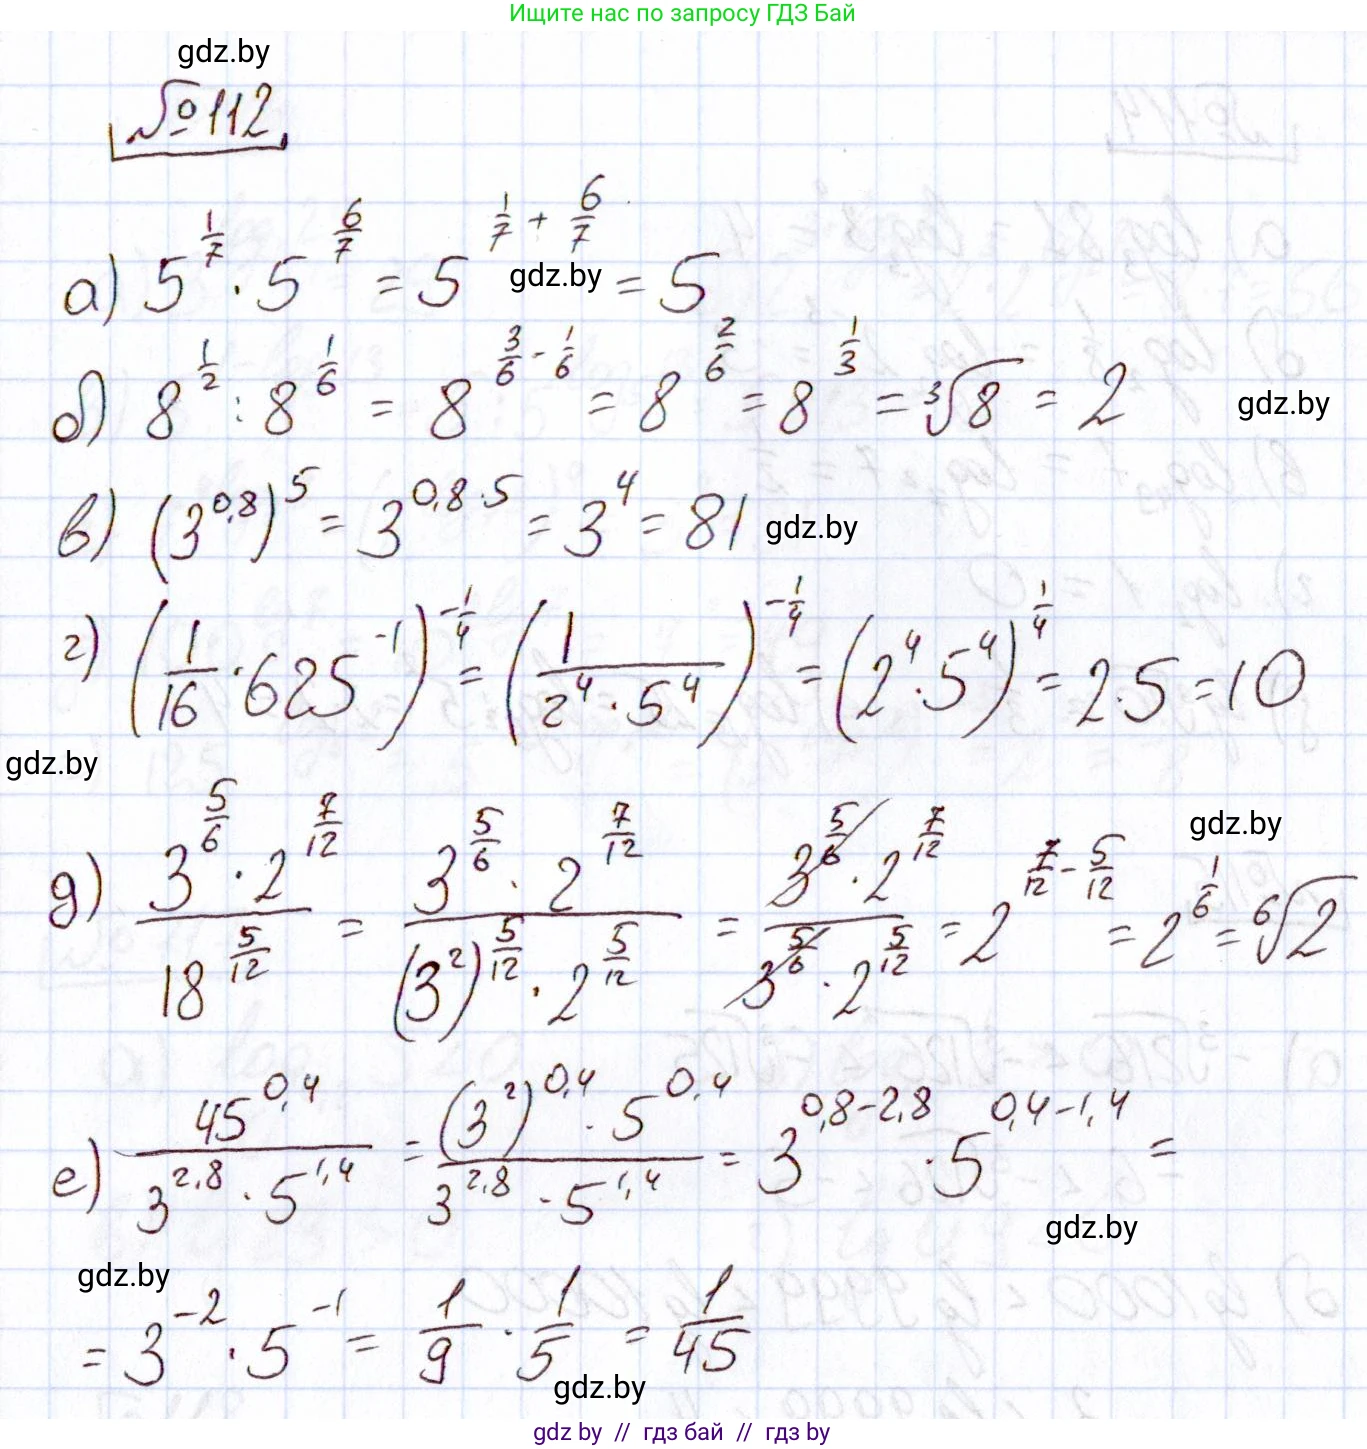 Ищите нас по запросу ГДЗ Бай
gdz.by
№112
а) 5^(1/7) · 5^(6/7) = 5^(1/7 + 6/7) = 5
gdz.by
б) 8^(1/2) : 8^(1/6) = 8^(3/6 - 1/6) = 8^(2/6) = 8^(1/3) = ³√8 = 2
gdz.by
в) (3^(0,8))^5 = 3^(0,8·5) = 3^4 = 81
gdz.by
г) (1/16 · 625^(-1))^(-1/4) = (1/(2^4 · 5^4))^(-1/4) = (2^4 · 5^4)^(1/4) = 2·5 = 10
gdz.by
gdz.by
д) (3^(5/6) · 2^(7/12))/(18^(5/12)) = (3^(5/6) · 2^(7/12))/((3^2)^(5/12) · 2^(5/12)) = (3^(5/6) · 2^(7/12))/(3^(5/6) · 2^(5/12)) = 2^(7/12 - 5/12) = 2^(1/6) = ⁶√2
е) (45^(0,4))/(3^(2,8) · 5^(1,4)) = ((3^2)^(0,4) · 5^(0,4))/(3^(2,8) · 5^(1,4)) = 3^(0,8-2,8) · 5^(0,4-1,4) =
gdz.by
gdz.by
= 3^(-2) · 5^(-1) = 1/9 · 1/5 = 1/45
gdz.by
gdz by // гдз бай // гдз by